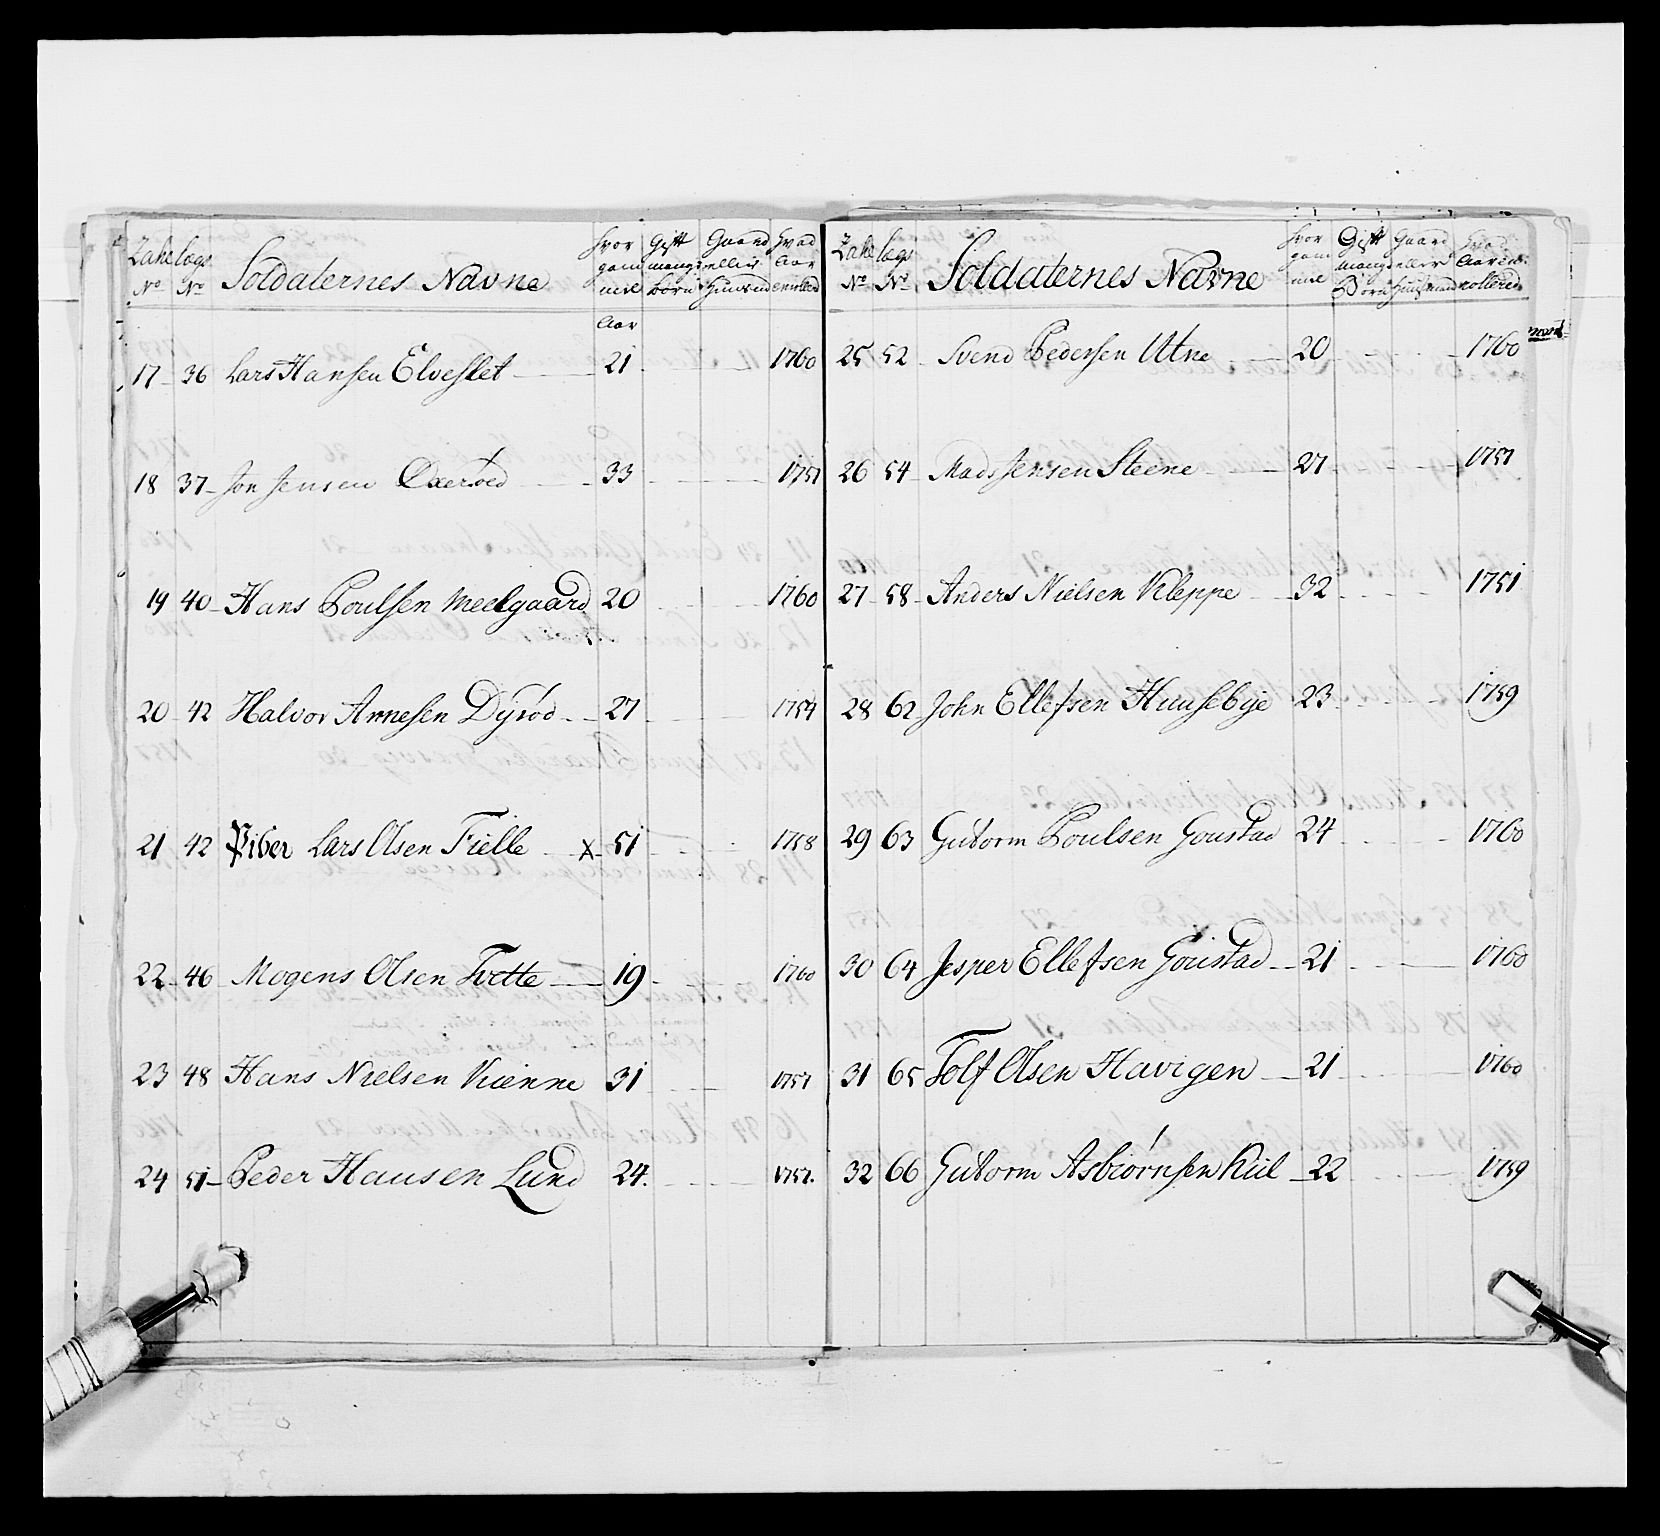 Lægs
No No Soldaternes Navne
Hvor gam̄el Gift mange børn Gaard eller Huusmd Hvad Aar enrolled
Aar
17 36 Lars Hansen Elveslet 21 1760
18 37 Jon Jensen Oxerød 33 1751
19 40 Hans Poulsen Meelgaard 20 1760
20 42 Halvor Arnesen Dÿrød 27 1754
21 42 Piber Lars Olsen Fielle x 51 1758
22 46 Mogens Olsen Tvette 19 1760
23 48 Hans Nielsen Kiænne 31 1751
24 51 Peder Hansen Lund 24 1757
Lægs
No No Soldaternes Navne
Hvor gam̄el Gift mange Børn Gaard eller Huusmand Hvad Aar enrollered
25 52 Svend Pedersen Utne 20 1760
26 54 Mads Jensen Steene 27 1757
27 58 Anders Nielsen Kleppe 32 1751
28 62 John Ellefsen Huusebÿe 23 1759
29 63 Gutorm Poulsen Goustad 24 1760
30 64 Jesper Ellefsen Goustad 21 1760
31 65 Tolf Olsen Havigen 21 1760
32 66 Gutorm Asbiørnsen Kiil 22 1759